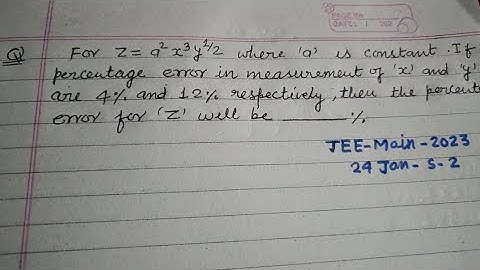 PAGE NO.
DATE: / 202
Q) For Z = a² x³ y^1/2 where 'a' is constant. If
percentage error in measurement of 'x' and 'y'
are 4% and 12% respectively, then the percent
error for 'Z' will be ______ %.
JEE-Main-2023
24 Jan-S-2